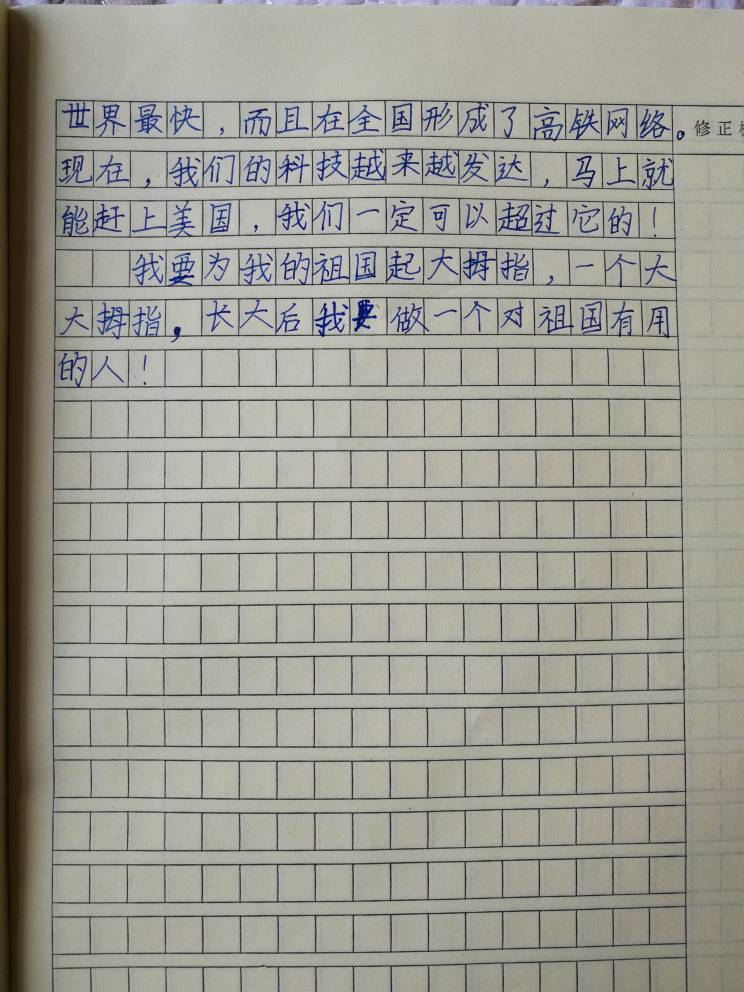 世界最快，而且在全国形成了高铁网络。
修正
现在，我们的科技越来越发达，马上就
能赶上美国，我们一定可以超过它的！
我要为我的祖国起大拇指，一个大
大拇指，长大后我要做一个对祖国有用
的人！